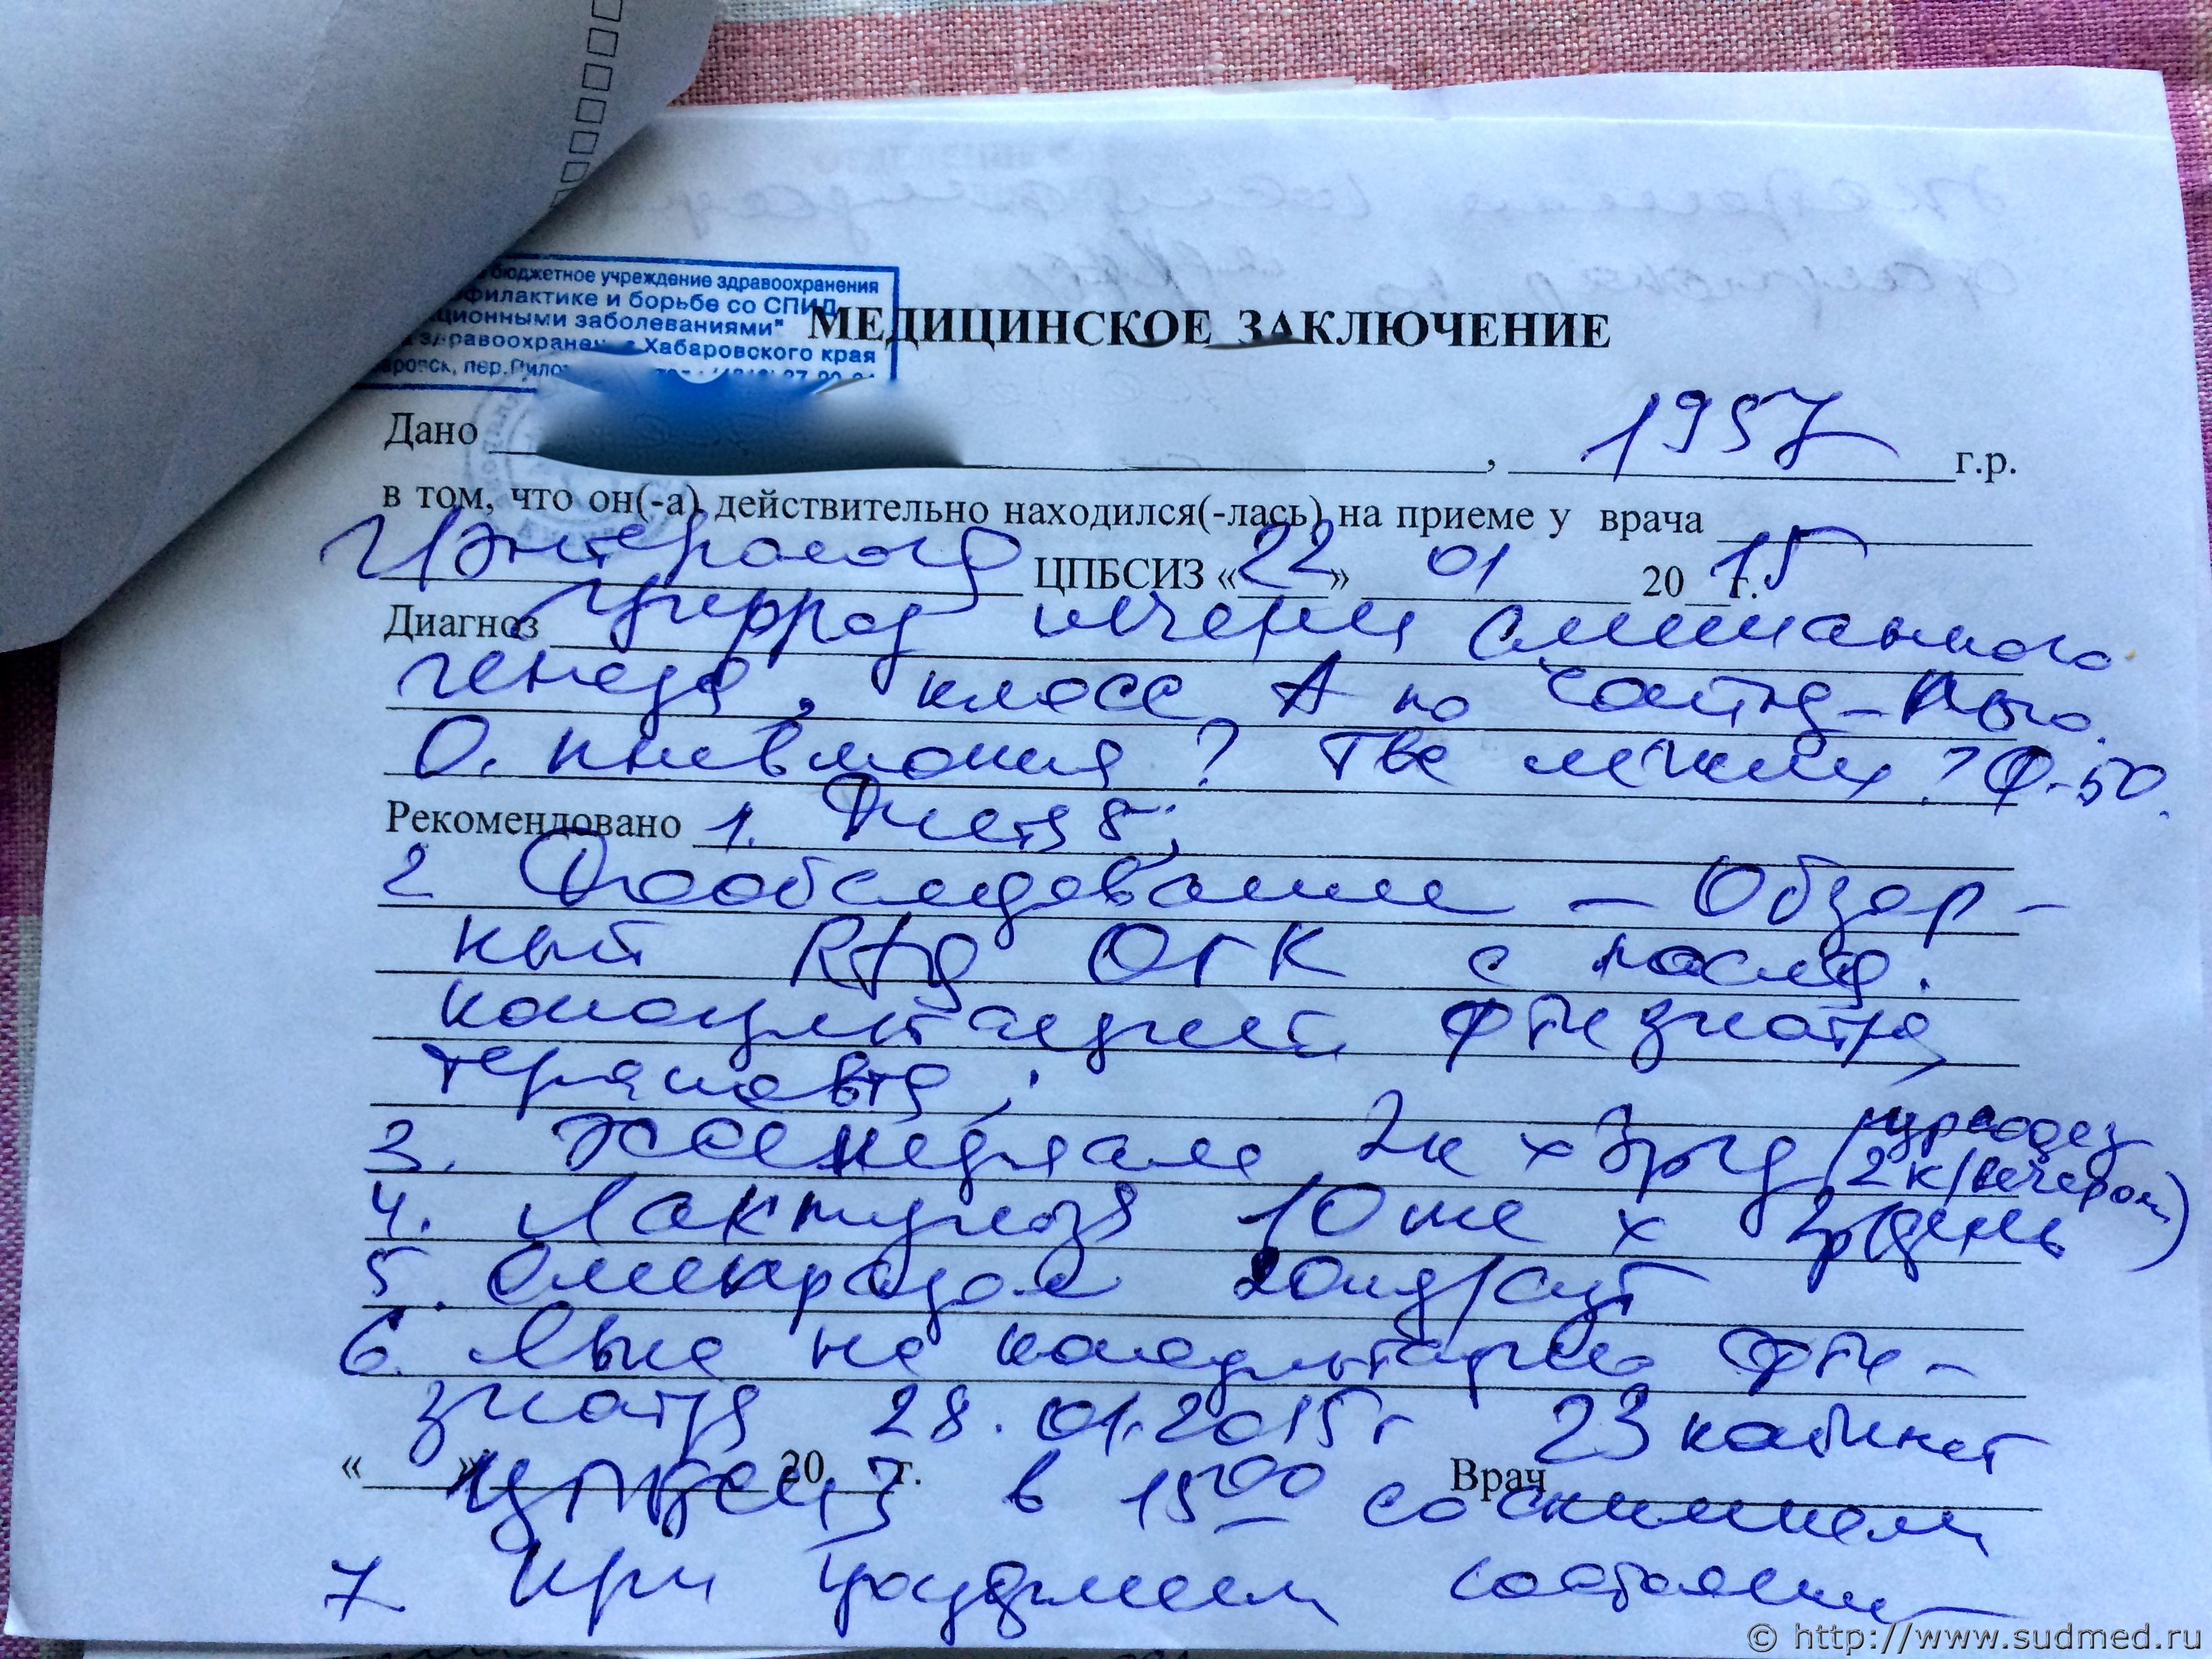 бюджетное учреждение здравоохранения
офилактике и борьбе со СПИД
кционными заболеваниями"
здравоохранен Хабаровского края
аровск, пер.Пило
МЕДИЦИНСКОЕ ЗАКЛЮЧЕНИЕ
Дано , 1957 г.р.
в том, что он(-а) действительно находился(-лась) на приеме у врача
ЦПБСИЗ «22» 01 2015 г.
Диагноз Цирроз печени смешанного
генеза, класс А по Чайлд-Пью.
О. пневмония? ТВС легких? Ф-50.
Рекомендовано 1. Диета 5;
2 Дообследование – Обзор-
ный ОГК с послед.
консультацией фтизиатра,
терапевта;
3. 2к х 3р/д (урсодез 2к/вечером)
4. Лактулоза 10 мл х 2р/день
5. Омепразол 20мг/сут
6. Явка на консультацию фти-
зиатра 28.01.2015г 23 кабинет
« » 20 г. Врач
ЦПБСИЗ в 15 00 со снимком
7 При ухудшении состояния
© http://www.sudmed.ru